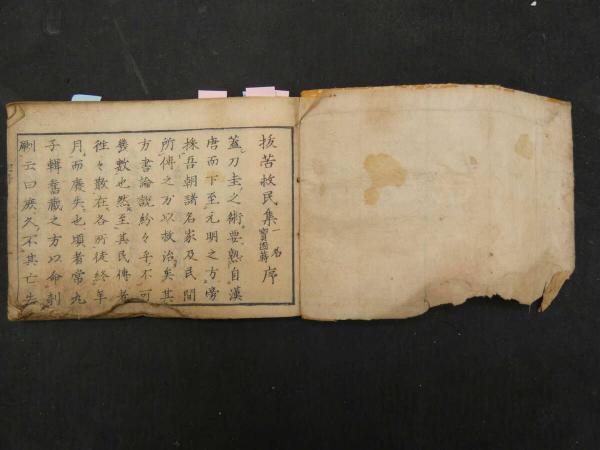 抜苦救民集一名寶因蒔序
蓋刀圭之術要熟自漢
唐而下至元明之方旁
採吾朝諸名家及民間
所傳之方以救治矣其
方書論説紛々乎不可
幾數也然至其民傳者
往々散在各所徒終年
月而廃失也頃者常九
子輯舊蔵之方以命剞
劂云曰庶久不其亡失